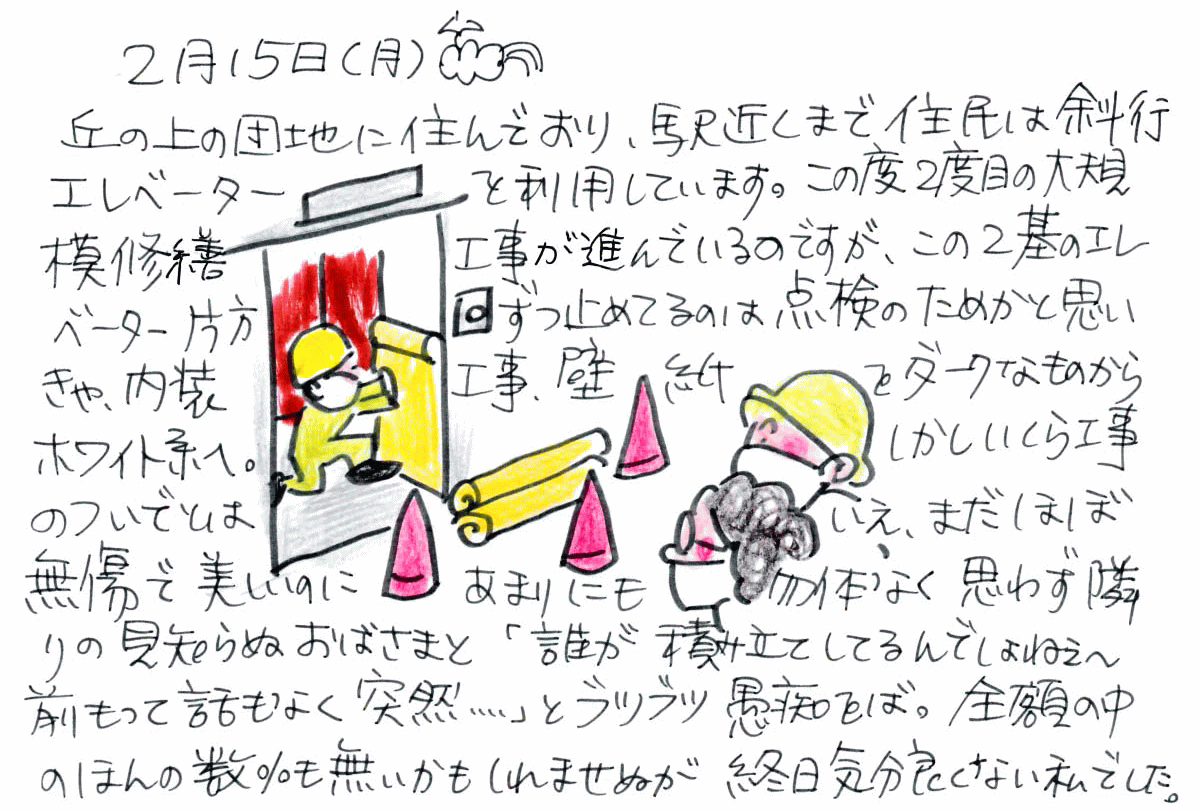 2月15日(月)
丘の上の団地に住んでおり、駅近くまで住民は斜行
エレベーターを利用しています。この度2度目の大規
模修繕工事が進んでいるのですが、この2基のエレ
ベーター片方ずつ止めてるのは点検のためかと思い
きや、内装工事、壁紙をダークなものから
ホワイト系へ。しかしいくら工事
のついでとはいえ、まだほぼ
無傷で美しいのにあまりにも勿体なく思わず隣
りの見知らぬおばさまと「誰が積み立てしてるんでしょねぇ〜
前もって話もなく突然……」とブツブツ愚痴をば。全額の中
のほんの数%も無いかもしれませぬが終日気分良くない私でした。